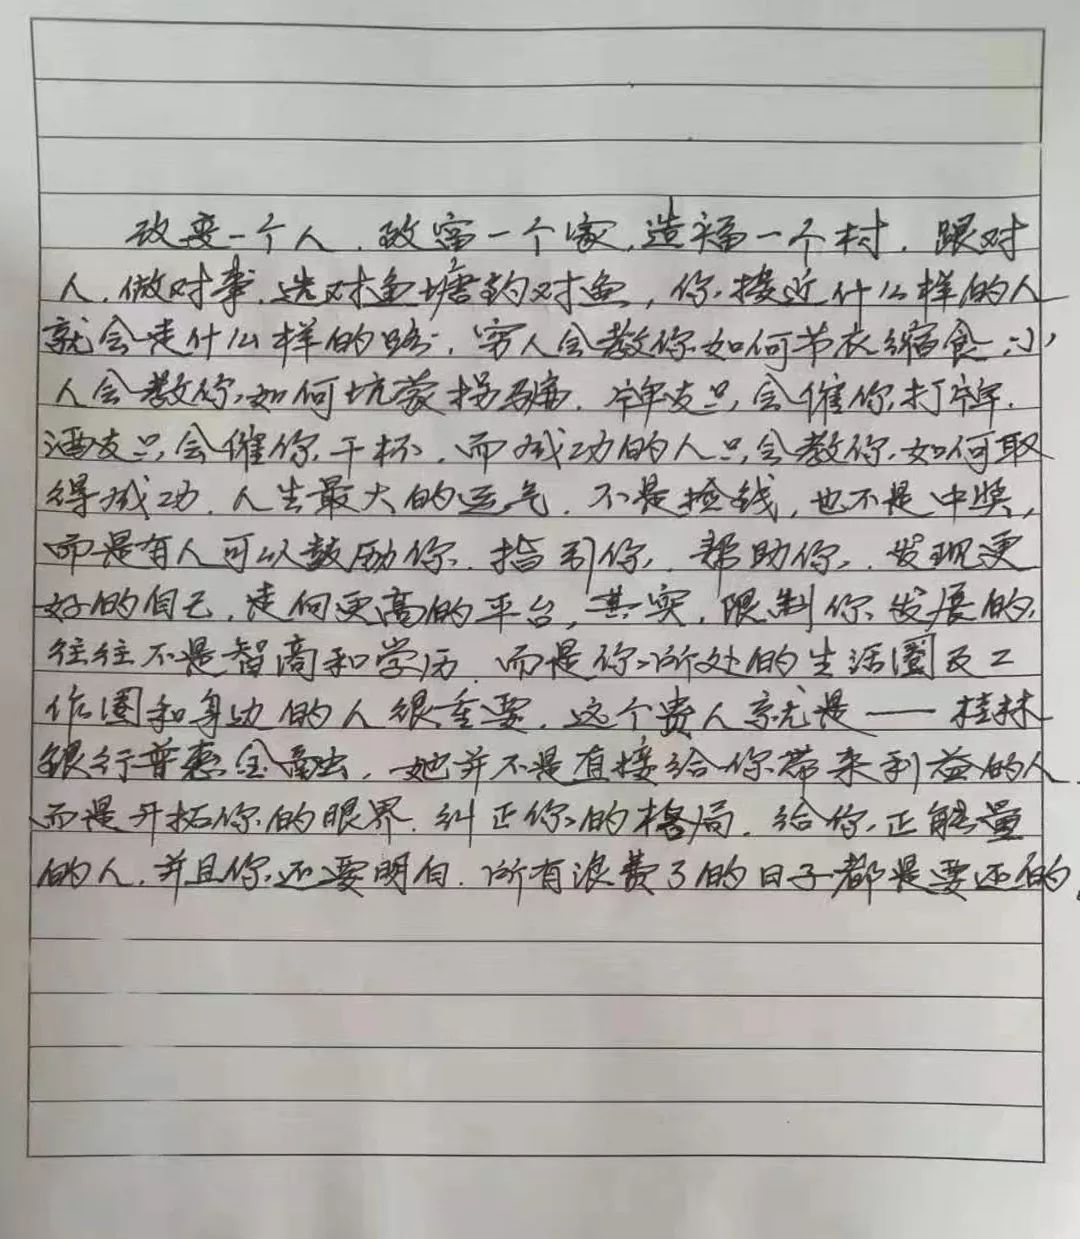 改变一个人，致富一个家，造福一个村，跟对
人，做对事，选对鱼塘钓对鱼，你接近什么样的人
就会走什么样的路，穷人会教你如何节衣缩食，小
人会教你如何坑蒙拐骗，牌友只会催你打牌，
酒友只会催你干杯，而成功的人只会教你如何取
得成功，人生最大的运气，不是捡钱，也不是中奖，
而是有人可以鼓励你，指引你，帮助你，发现更
好的自己，走向更高的平台，其实，限制你发展的，
往往不是智商和学历，而是你所处的生活圈及工
作圈和身边的人很重要，这个贵人就是——桂林
银行普惠金融，她并不是直接给你带来利益的人，
而是开拓你的眼界，纠正你的格局，给你正能量
的人，并且你还要明白，所有浪费了的日子都是要还的。